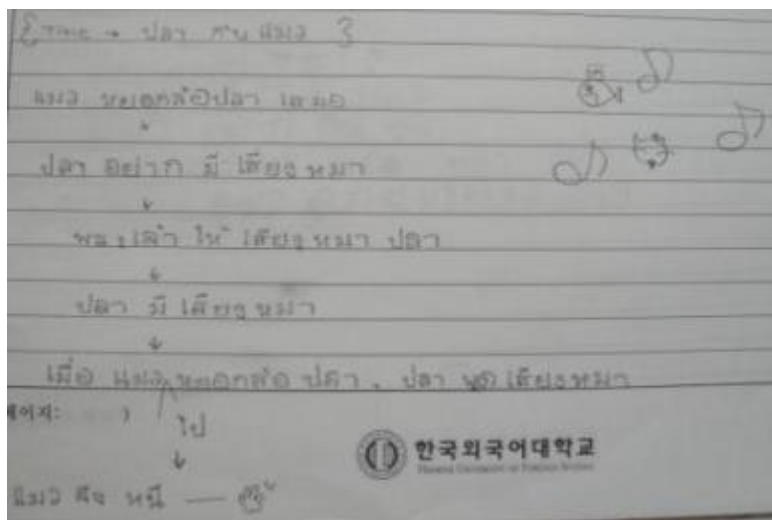 ปลา กับ แมว }
แมว หยอกล้อปลา เสมอ
ปลา อยาก มี เสียง หมา
พระเจ้า ให้ เสียง หมา ปลา
ปลา มี เสียง หมา
เมื่อ แมว หยอกล้อ ปลา , ปลา พูด เสียง หมา
페이지: )
ไป
한국외국어대학교
Hankuk University of Foreign Studies
แมว จึง หนี —